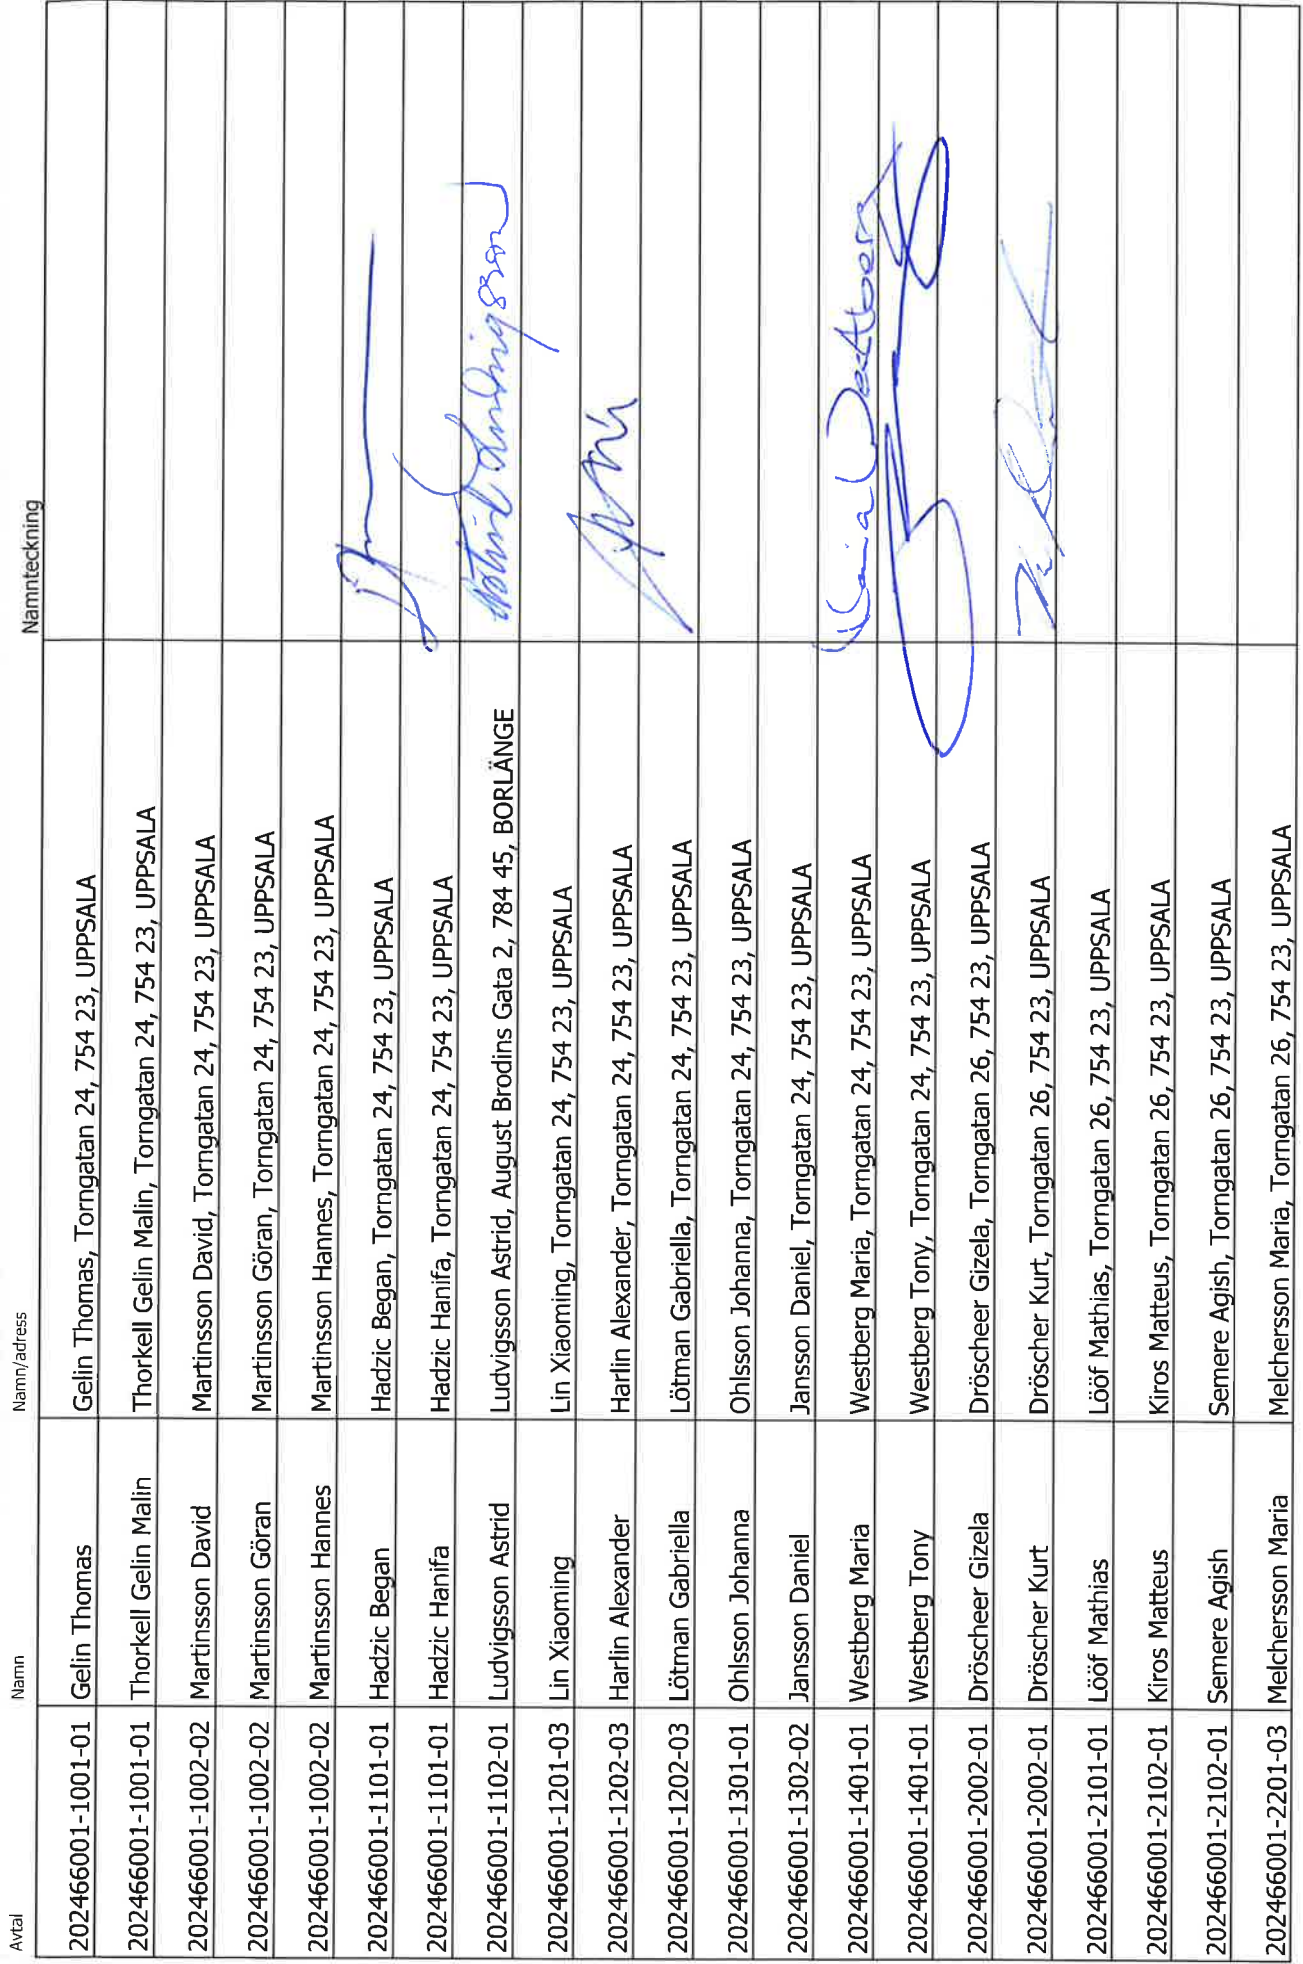 Avtal Namn Namn/adress Namnteckning
202466001-1001-01 Gelin Thomas Gelin Thomas, Torngatan 24, 754 23, UPPSALA
202466001-1001-01 Thorkell Gelin Malin Thorkell Gelin Malin, Torngatan 24, 754 23, UPPSALA
202466001-1002-02 Martinsson David Martinsson David, Torngatan 24, 754 23, UPPSALA
202466001-1002-02 Martinsson Göran Martinsson Göran, Torngatan 24, 754 23, UPPSALA
202466001-1002-02 Martinsson Hannes Martinsson Hannes, Torngatan 24, 754 23, UPPSALA
202466001-1101-01 Hadzic Began Hadzic Began, Torngatan 24, 754 23, UPPSALA
202466001-1101-01 Hadzic Hanifa Hadzic Hanifa, Torngatan 24, 754 23, UPPSALA
202466001-1102-01 Ludvigsson Astrid Ludvigsson Astrid, August Brodins Gata 2, 784 45, BORLÄNGE Astrid Ludvigsson
202466001-1201-03 Lin Xiaoming Lin Xiaoming, Torngatan 24, 754 23, UPPSALA
202466001-1202-03 Harlin Alexander Harlin Alexander, Torngatan 24, 754 23, UPPSALA
202466001-1202-03 Lötman Gabriella Lötman Gabriella, Torngatan 24, 754 23, UPPSALA
202466001-1301-01 Ohlsson Johanna Ohlsson Johanna, Torngatan 24, 754 23, UPPSALA
202466001-1302-02 Jansson Daniel Jansson Daniel, Torngatan 24, 754 23, UPPSALA
202466001-1401-01 Westberg Maria Westberg Maria, Torngatan 24, 754 23, UPPSALA Maria Westberg
202466001-1401-01 Westberg Tony Westberg Tony, Torngatan 24, 754 23, UPPSALA
202466001-2002-01 Dröscheer Gizela Dröscheer Gizela, Torngatan 26, 754 23, UPPSALA
202466001-2002-01 Dröscher Kurt Dröscher Kurt, Torngatan 26, 754 23, UPPSALA
202466001-2101-01 Lööf Mathias Lööf Mathias, Torngatan 26, 754 23, UPPSALA
202466001-2102-01 Kiros Matteus Kiros Matteus, Torngatan 26, 754 23, UPPSALA
202466001-2102-01 Semere Agish Semere Agish, Torngatan 26, 754 23, UPPSALA
202466001-2201-03 Melchersson Maria Melchersson Maria, Torngatan 26, 754 23, UPPSALA